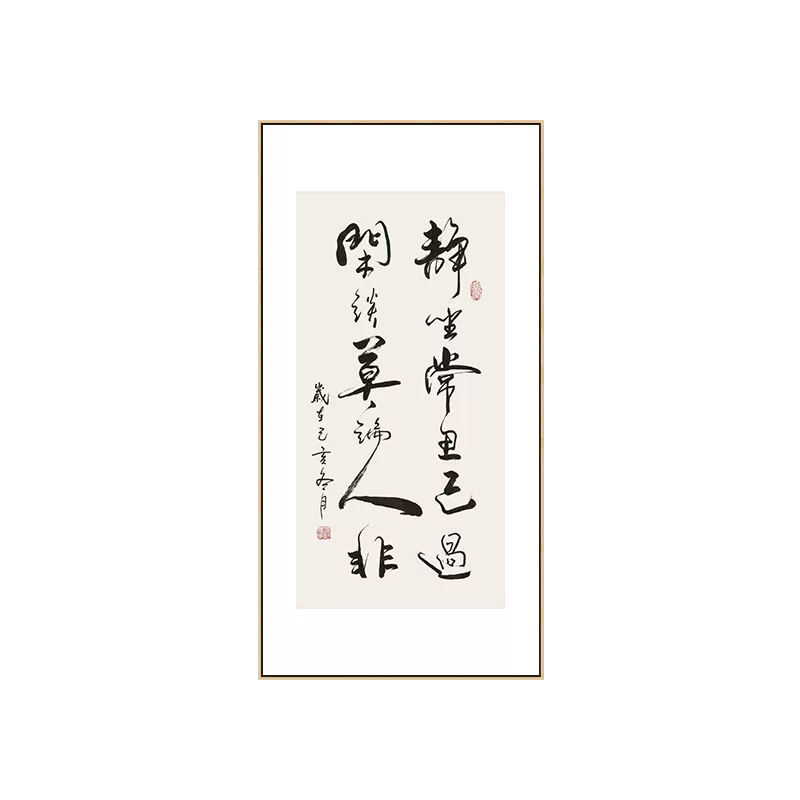 靜坐常思己過
閑談莫論人非
歲在己亥冬月